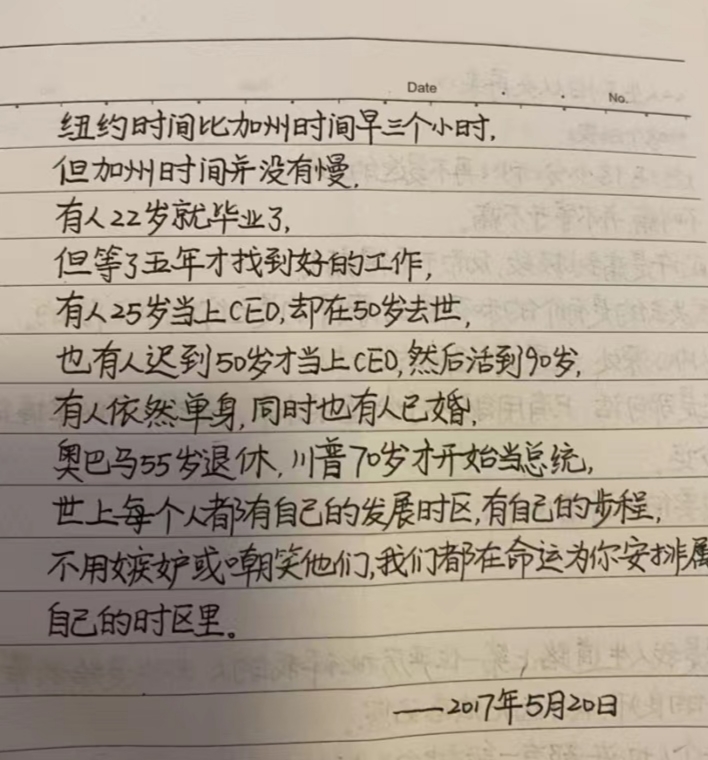 Date
No.
纽约时间比加州时间早三个小时,
但加州时间并没有慢,
有人22岁就毕业了,
但等了五年才找到好的工作,
有人25岁当上CEO,却在50岁去世,
也有人迟到50岁才当上CEO,然后活到90岁,
有人依然单身,同时也有人已婚,
奥巴马55岁退休,川普70岁才开始当总统,
世上每个人都有自己的发展时区,有自己的步程,
不用嫉妒或嘲笑他们,我们都在命运为你安排属
自己的时区里。
——2017年5月20日